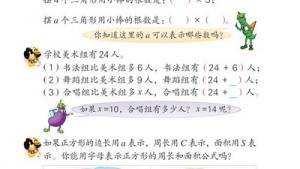 摆4个三角形用小棒的根数是:( )×3;
摆a个三角形用小棒的根数是:( )×( )。
你知道这里的a可以表示哪些数吗?
学校美术组有24人。
(1)书法组比美术组多6人,书法组有(24+6)人;
(2)舞蹈组比美术组多9人,舞蹈组有(24+__)人;
(3)合唱组比美术组多x人,合唱组有(24+__)人。
如果x=10,合唱组有多少人?x=14呢?
如果正方形的边长用a表示,周长用C表示,面积用S表
示。你能用字母表示正方形的周长和面积公式吗?